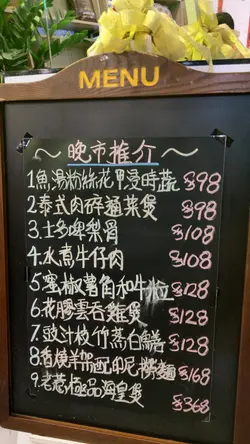 MENU
～晚市推介～
1.魚湯粉絲花甲浸時蔬 $98
2.泰式肉碎通菜煲 $98
3.士多啤梨骨 $108
4.水煮牛仔肉 $108
5.蜜椒薯角和牛粒 $128
6.花膠雲吞雞煲 $128
7.豉汁枝竹蒸白鱔 $128
8.香燒羊架配印尼撈麵 $168
9.老巷極品海皇煲 $368